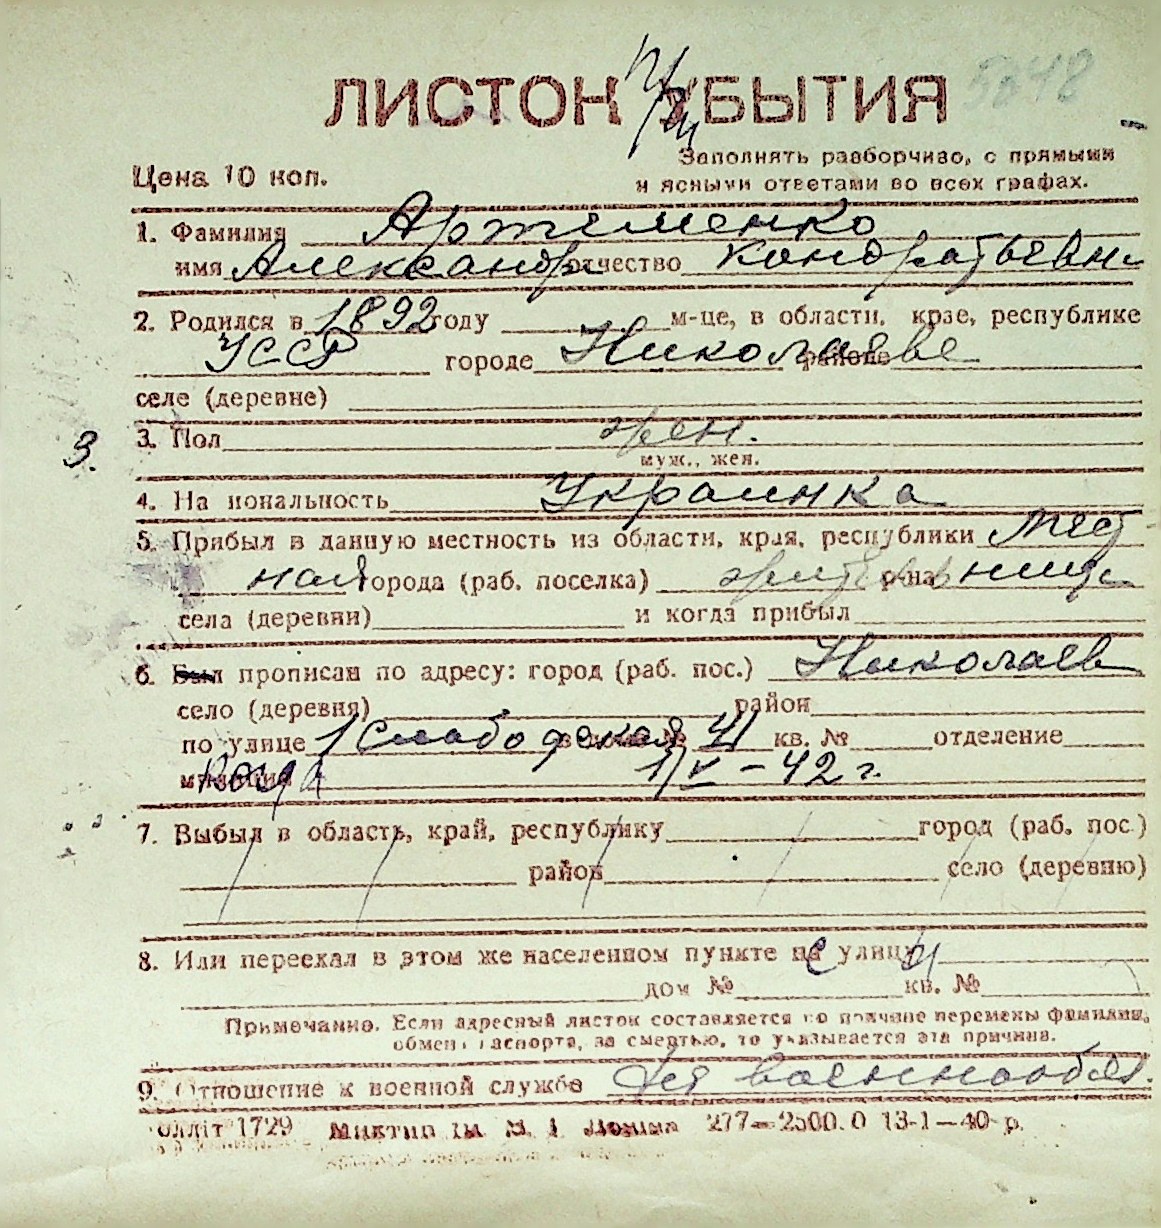 ЛИСТОК УБЫТИЯ 5048
Цена 10 коп.
Заполнять разборчиво, с прямыми
и ясными ответами во всех графах.
1. Фамилия Артеменко
имя Александра отчество Кондратьевн.
2. Родился в 1892 году м-це, в области, крае, республике
УССР городе Николаеве районе
селе (деревне)
3.
3. Пол жен.
муж., жен.
4. На иональность Украинка
5. Прибыл в данную местность из области, края, республики мест
ная города (раб. поселка) жительница р-на
села (деревни) и когда прибыл
6. Был прописан по адресу: город (раб. пос.) Николаев
село (деревня) район
по улице 1 Слободская дом № 41 кв. № отделение
милиции 1/V-42 г.
7. Выбыл в область, край, республику город (раб. пос.)
район село (деревню)
8. Или переехал в этом же населенном пункте на улицу
дом № кв. №
Примечание. Если адресный листок составляется по причине перемены фамилии,
обмен паспорта, за смертью, то указывается эта причина.
9. Отношение к военной службе Не военнообяз.
олліт 1729 277—2500.0 13-1—40 р.